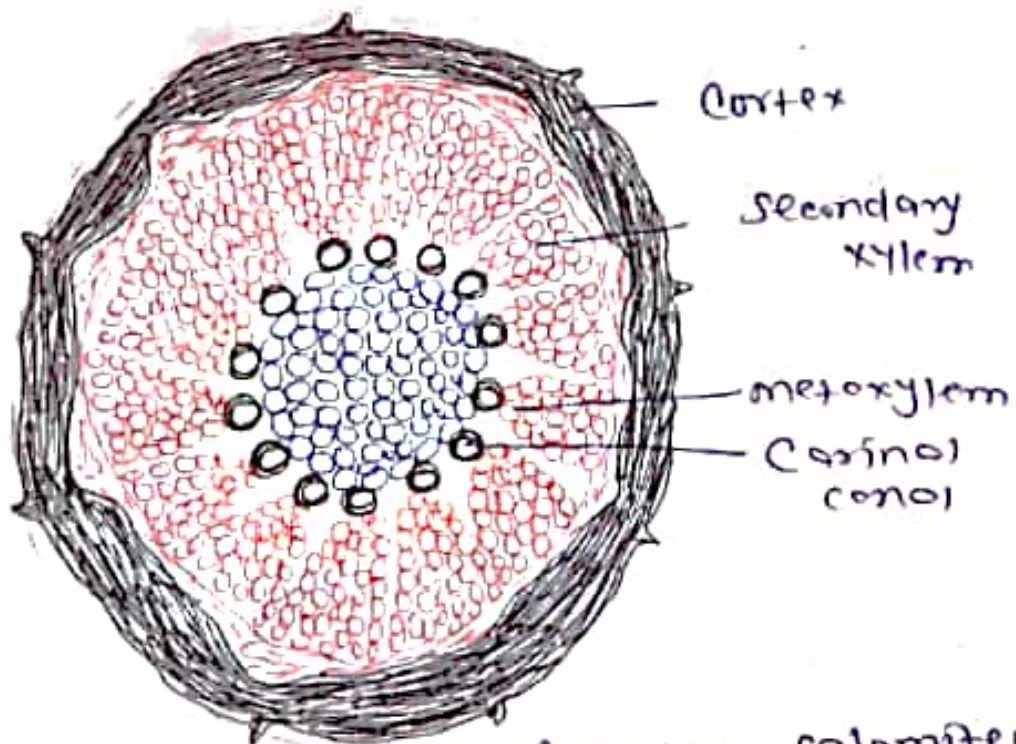 Cortex
Secondary
xylem
metaxylem
Carinal
canal